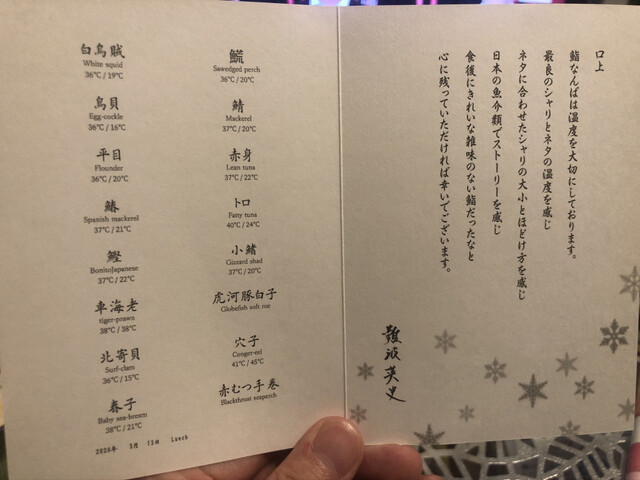 白烏賊
White squid
36℃/19℃
鳥貝
Egg-cockle
36℃/16℃
平目
Flounder
36℃/20℃
鰆
Spanish mackerel
37℃/21℃
鰹
BonitoJapanese
37℃/22℃
車海老
tiger-prawn
38℃/38℃
北寄貝
Surf-clam
36℃/15℃
春子
Baby sea-bream
38℃/21℃
2020年 3月 13日 Lunch
Sawedged perch
36℃/20℃
鯖
Mackerel
37℃/20℃
赤身
Lean tuna
37℃/22℃
トロ
Fatty tuna
40℃/24℃
小鰭
Gizzard shad
37℃/20℃
虎河豚白子
Globefish soft roe
穴子
Conger-eel
41℃/45℃
赤むつ手巻
Blackthroat seaperch
口上
鮨なんばは温度を大切にしております。
最良のシャリとネタの温度を感じ
ネタに合わせたシャリの大小とほどけ方を感じ
日本の魚介類でストーリーを感じ
食後にきれいな雑味のない鮨だったなと
心に残っていただければ幸いでございます。
難波英史